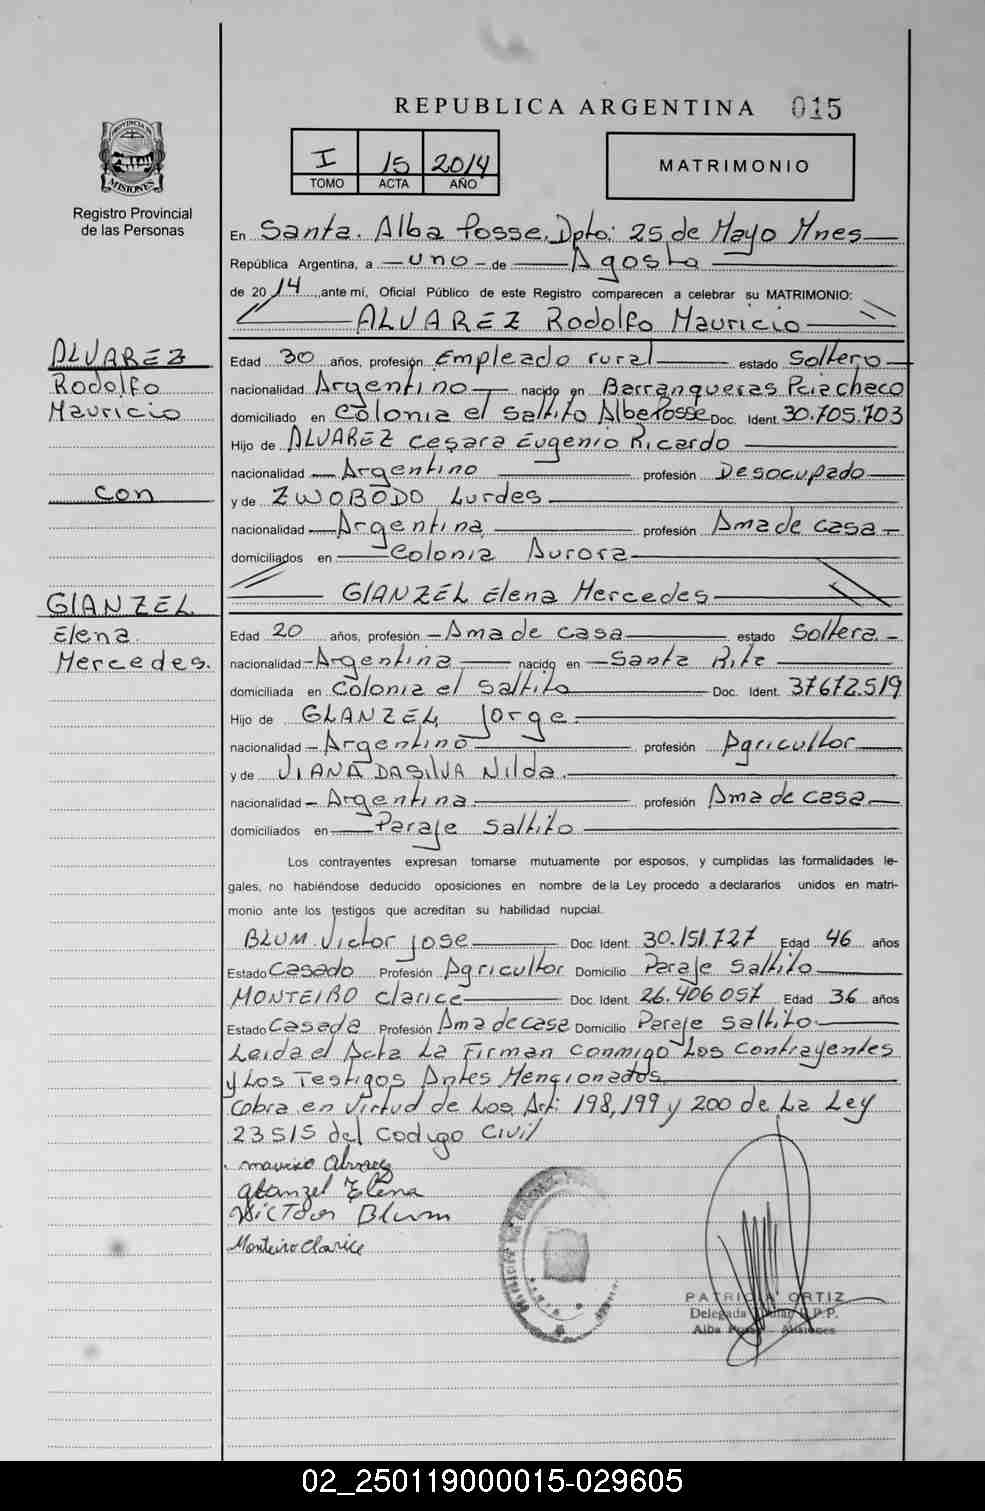 REPUBLICA ARGENTINA 015
I 15 2014
TOMO ACTA AÑO
MATRIMONIO
PROVINCIA DE
MISIONES
Registro Provincial
de las Personas
En Santa. Alba Posse. Dpto: 25 de Mayo Mnes
República Argentina, a uno de Agosto
de 2014, ante mí, Oficial Público de este Registro comparecen a celebrar su MATRIMONIO:
ALVAREZ Rodolfo Mauricio
ALVAREZ
Rodolfo
Mauricio
con
GIANZEL
Elena
Mercedes.
Edad 30 años, profesión Empleado rural estado Soltero
nacionalidad Argentino nacido en Barranqueras Pcia chaco
domiciliado en Colonia el Saltito Albe Posse Doc. Ident. 30.705.703
Hijo de ALVAREZ Cesara Eugenio Ricardo
nacionalidad Argentino profesión Desocupado
y de ZWOBODO Lurdes
nacionalidad Argentina profesión Ama de casa
domiciliados en Colonia Aurora
GIANZEL Elena Mercedes
Edad 20 años, profesión Ama de casa estado Soltera
nacionalidad Argentina nacido en Santa Rita
domiciliada en Colonia el Saltito Doc. Ident. 37672.519
Hijo de GLANZEL Jorge
nacionalidad Argentino profesión Agricultor
y de VIANA DASILVA Nilda
nacionalidad Argentina profesión Ama de casa
domiciliados en Paraje Saltito
Los contrayentes expresan tomarse mutuamente por esposos, y cumplidas las formalidades le-
gales, no habiéndose deducido oposiciones en nombre de la Ley procedo a declararlos unidos en matri-
monio ante los testigos que acreditan su habilidad nupcial.
BLUM Victor jose Doc. Ident. 30.151.727 Edad 46 años
Estado Casado Profesión Agricultor Domicilio Paraje Saltito
MONTEIRO Clarice Doc. Ident. 26.406.057 Edad 36 años
Estado Casada Profesión Ama de casa Domicilio Paraje Saltito
Leida el Acta La Firman conmigo Los Contrayentes
y Los Testigos Antes Mencionados
Cobra en Virtud de Los Art: 198, 199 y 200 de La Ley
23515 del Codigo Civil
mauricio Alvarez
Glanzel Elena
Victor Blum
Monteiro Clarice
PATRICIA ORTIZ
Delegada Titular R.P.P.
Alba Posse Misiones
02_250119000015-029605